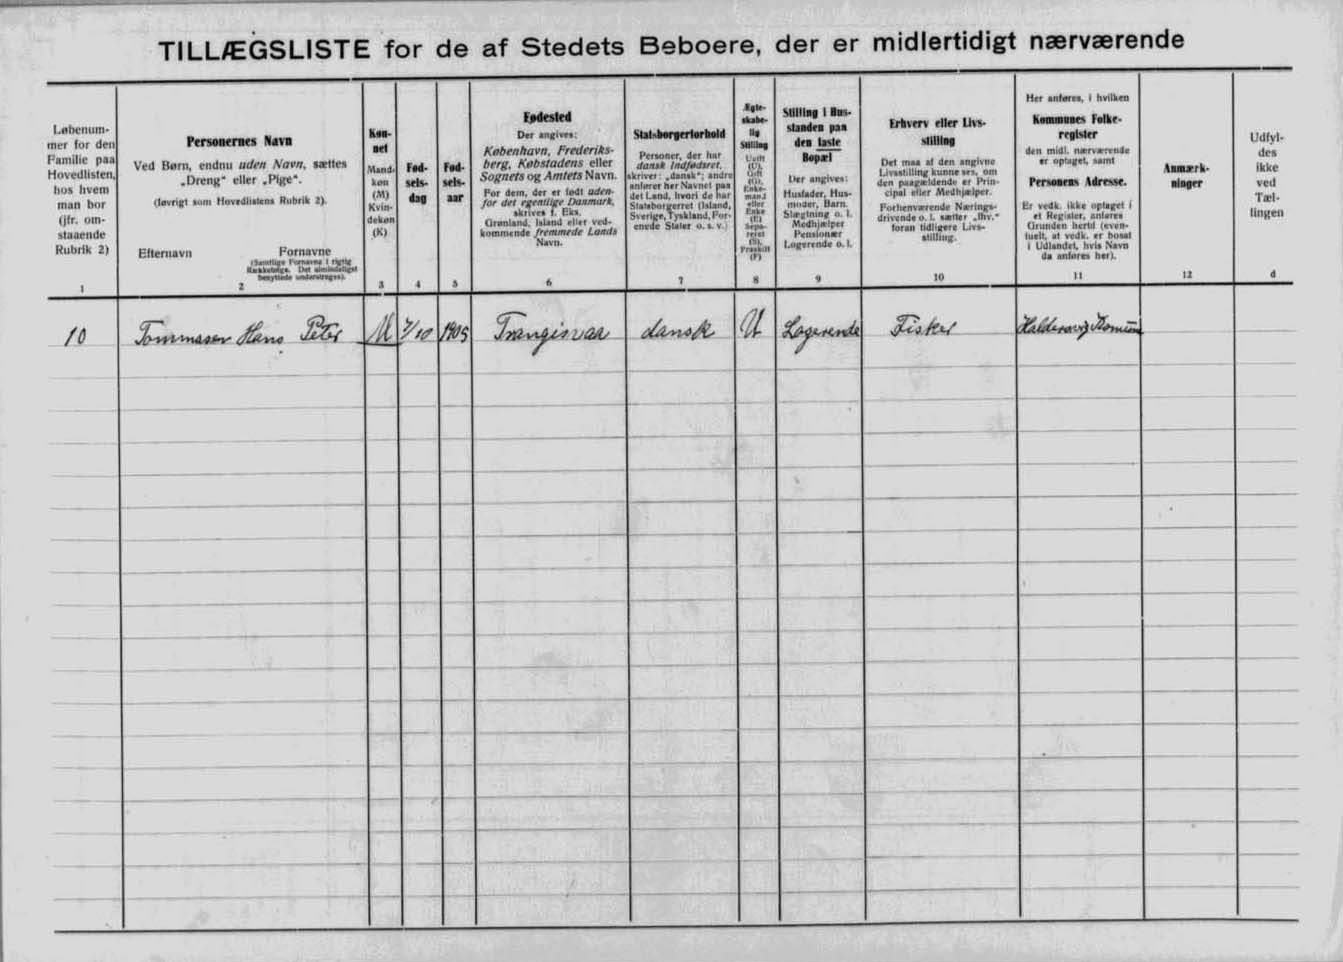 TILLÆGSLISTE for de af Stedets Beboere, der er midlertidigt nærværende
Løbenum-
mer for den
Familie paa
Hovedlisten,
hos hvem
man bor
(jfr. om-
staaende
Rubrik 2)
1
Personernes Navn
Ved Børn, endnu uden Navn, sættes
„Dreng“ eller „Pige“.
(Iøvrigt som Hovedlistens Rubrik 2).
Efternavn
Fornavne
(Samtlige Fornavne i rigtig
Rækkefølge. Det almindeligst
benyttede understreges).
2
Køn-
net
Mand-
køn
(M)
Kvin-
dekøn
(K)
3
Fød-
sels-
dag
4
Fød-
sels-
aar
5
Fødested
Der angives:
København, Frederiks-
berg, Købstadens eller
Sognets og Amtets Navn.
For dem, der er født uden-
for det egentlige Danmark,
skrives f. Eks.
Grønland, Island eller ved-
kommende fremmede Lands
Navn.
6
Statsborgerforhold
Personer, der har
dansk Indfødsret,
skriver: „dansk“; andre
anfører her Navnet paa
det Land, hvori de har
Statsborgerret (Island,
Sverige, Tyskland, For-
enede Stater o. s. v.)
7
Ægte-
skabe-
lig
Stilling
Ugift
(U),
Gift
(G),
Enke-
mand
eller
Enke
(E)
Sepa-
reret
(S),
Fraskilt
(F)
8
Stilling i Hus-
standen paa
den faste
Bopæl
Der angives:
Husfader, Hus-
moder, Barn,
Slægtning o. l.
Medhjælper
Pensionær
Logerende o. l.
9
Erhverv eller Livs-
stilling
Det maa af den angivne
Livsstilling kunne ses, om
den paagældende er Prin-
cipal eller Medhjælper.
Forhenværende Nærings-
drivende o. l. sætter „fhv.“
foran tidligere Livs-
stilling.
10
Her anføres, i hvilken
Kommunes Folke-
register
den midl. nærværende
er optaget, samt
Personens Adresse.
Er vedk. ikke optaget i
et Register, anføres
Grunden hertil (even-
tuelt, at vedk. er bosat
i Udlandet, hvis Navn
da anføres her).
11
Anmærk-
ninger
12
Udfyl-
des
ikke
ved
Tæl-
lingen
d
10 Tommasen Hans Peter M 7/10 1905 Trangisvaa dansk U Logerende Fisker